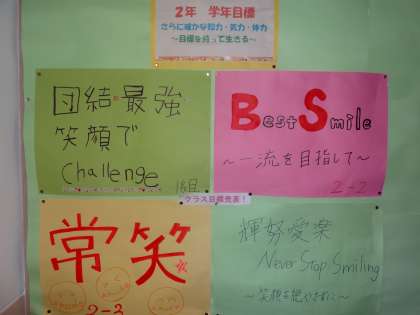 2年 学年目標
さらに確かな知力・気力・体力
～目標を持って生きる～
団結・最強
笑顔で
Challenge
Best Smile
～一流を目指して～
2-2
クラス目標発表！
常笑
2-3
輝努愛楽
Never Stop Smiling